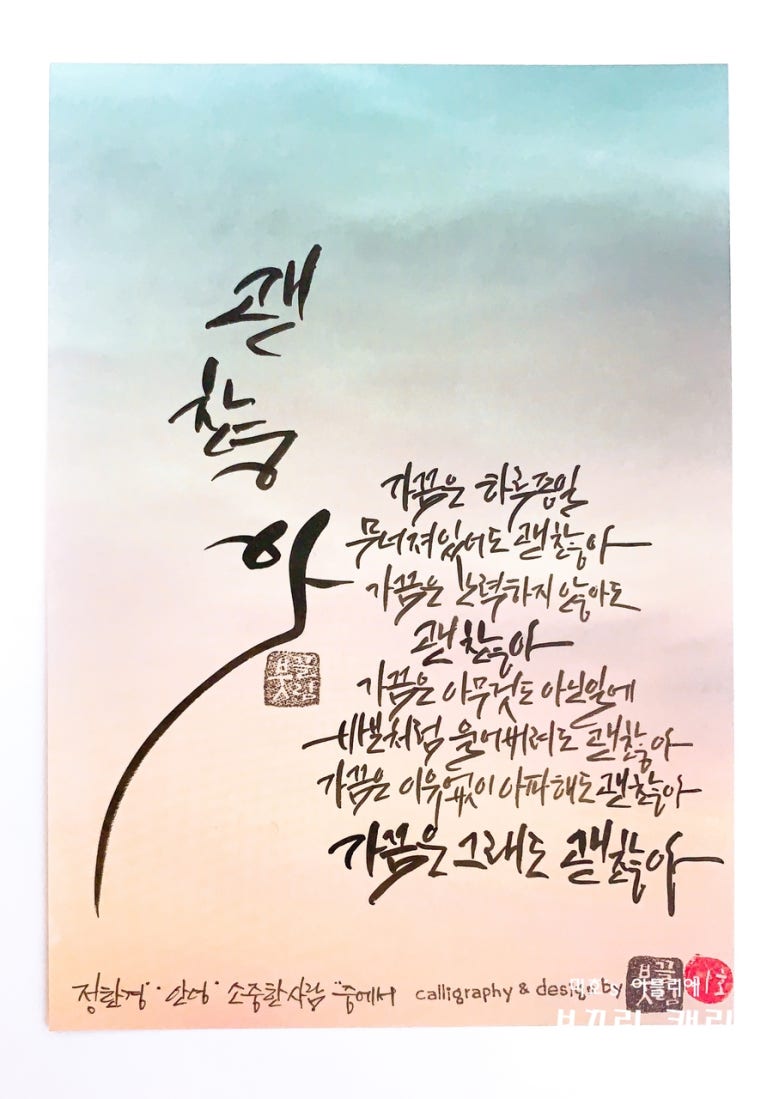 괜
찮
아
가끔은 하루종일
무너져있어도 괜찮아
가끔은 노력하지 않아도
괜찮아
가끔은 아무것도 아닌일에
바보처럼 울어버려도 괜찮아
가끔은 이유없이 아파해도 괜찮아
가끔은 그래도 괜찮아
정환경 " 안녕, 소중한 사람 " 중에서 calligraphy & design by
어플림에